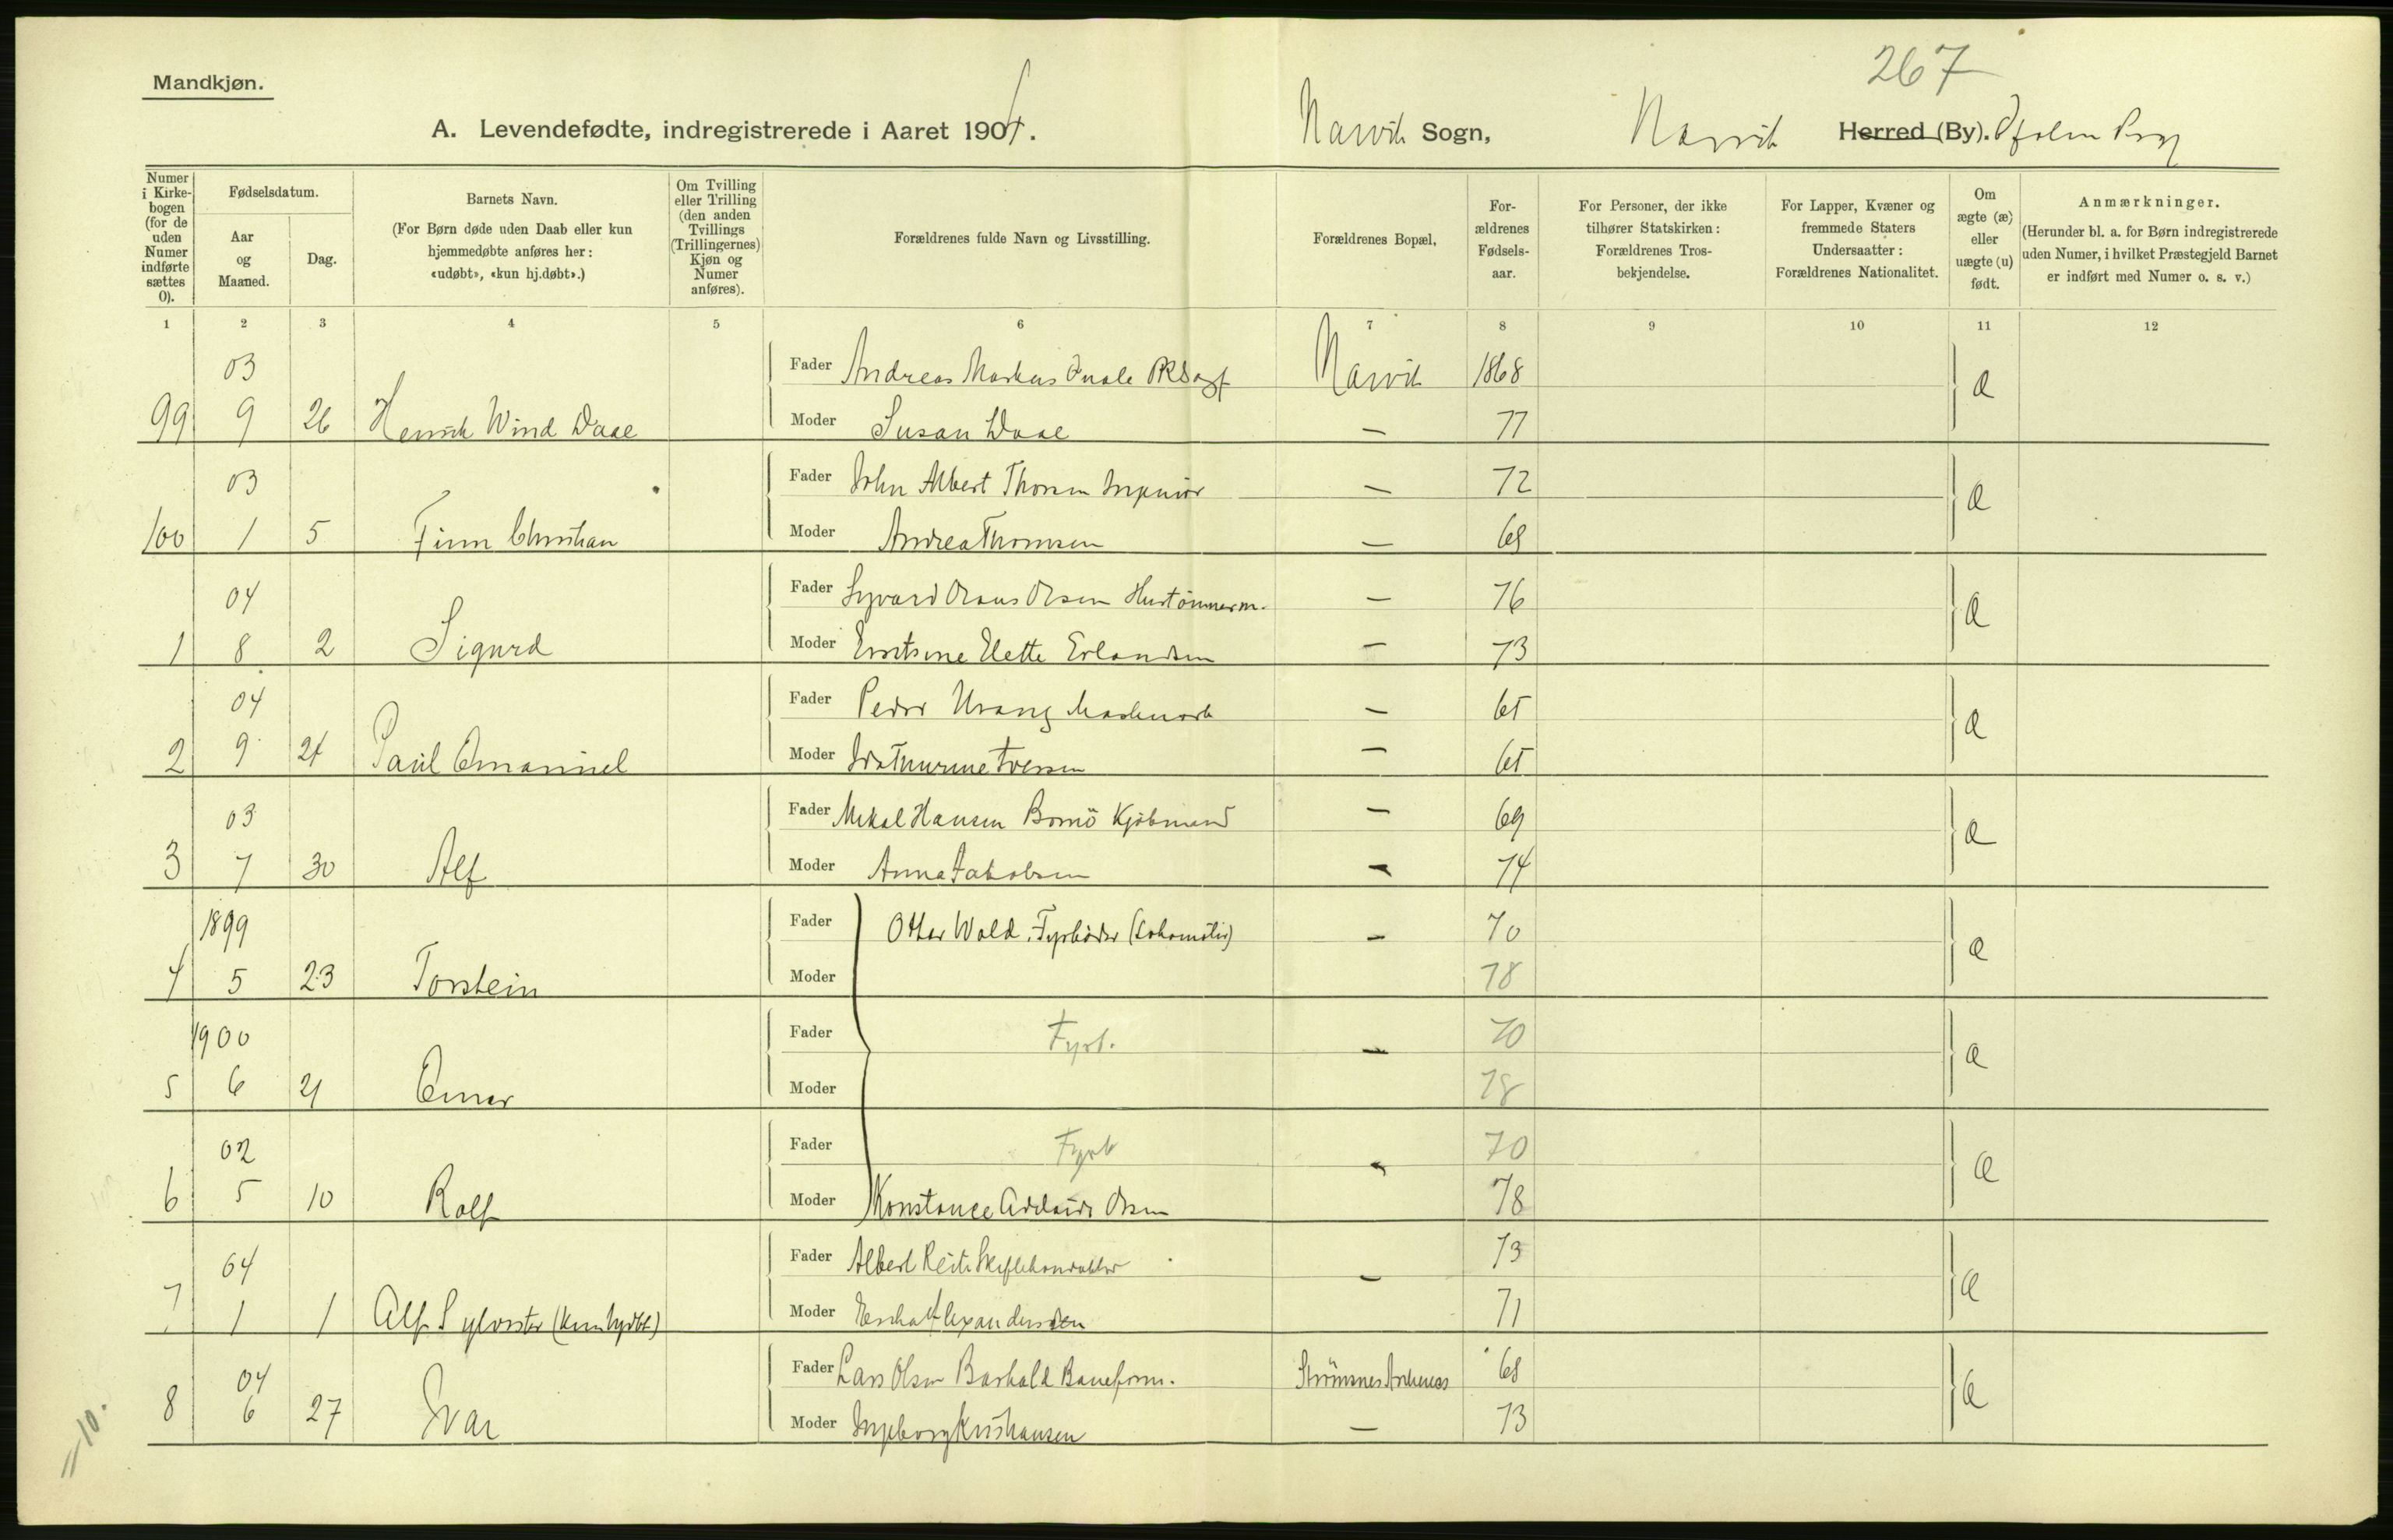 267
Mandkjøn.
A. Levendefødte, indregistrerede i Aaret 1904.
Narvik Sogn, Narvik Herred (By).
Numer i Kirke-bogen (for de uden Numer indførte sættes 0).
Fødselsdatum.
Aar og Maaned.
Dag.
Barnets Navn.
(For Børn døde uden Daab eller kun hjemmedøbte anføres her: «udøbt», «kun hj.døbt».)
Om Tvilling eller Trilling (den anden Tvillings (Trillingernes) Kjøn og Numer anføres).
Forældrenes fulde Navn og Livsstilling.
Forældrenes Bopæl,
For-ældrenes Fødsels-aar.
For Personer, der ikke tilhører Statskirken: Forældrenes Tros-bekjendelse.
For Lapper, Kvæner og fremmede Staters Undersaatter: Forældrenes Nationalitet.
Om ægte (æ) eller uægte (u) født.
Anmærkninger.
(Herunder bl. a. for Børn indregistrerede uden Numer, i hvilket Præstegjeld Barnet er indført med Numer o. s. v.)
1 2 3 4 5 6 7 8 9 10 11 12
03 Fader Andreas Markus Narvik 1868 æ
99 9 26 Henrik Wind Daae Moder Susan Daae — 77
03 Fader John Albert Thomsen Ingeniør — 72 æ
100 1 5 Finn Christian Moder Andrea Thomsen — 68
04 Fader Olsen Hustömmerm. — 76 æ
1 8 2 Sigurd Moder Elette Erlandsen — 73
04 Fader Peder — 65 æ
2 9 24 Paul Emanuel Moder — 65
03 Fader Mikal Hansen Kjöbmand — 69 æ
3 7 30 Alf Moder Anna Jakobsen — 74
1899 Fader Otter Wold. Fyrböder (Lokomotiv) — 70 æ
4 5 23 Torstein Moder 78
1900 Fader Fyrb. — 70 æ
5 6 21 Einar Moder 78
02 Fader Fyrb — 70 æ
6 5 10 Rolf Moder Konstance Adelaide Olsen 78
04 Fader Albert Skiftekonduktør — 73 æ
7 1 1 Alf Sylvester (kun hjdbt) Moder Alexandersen 71
04 Fader Lars Olsen Barhald Baneform. Strömsnes Ankenes 68 æ
8 6 27 Ivar Moder Ingeborg Kristiansen — 73
= 10.